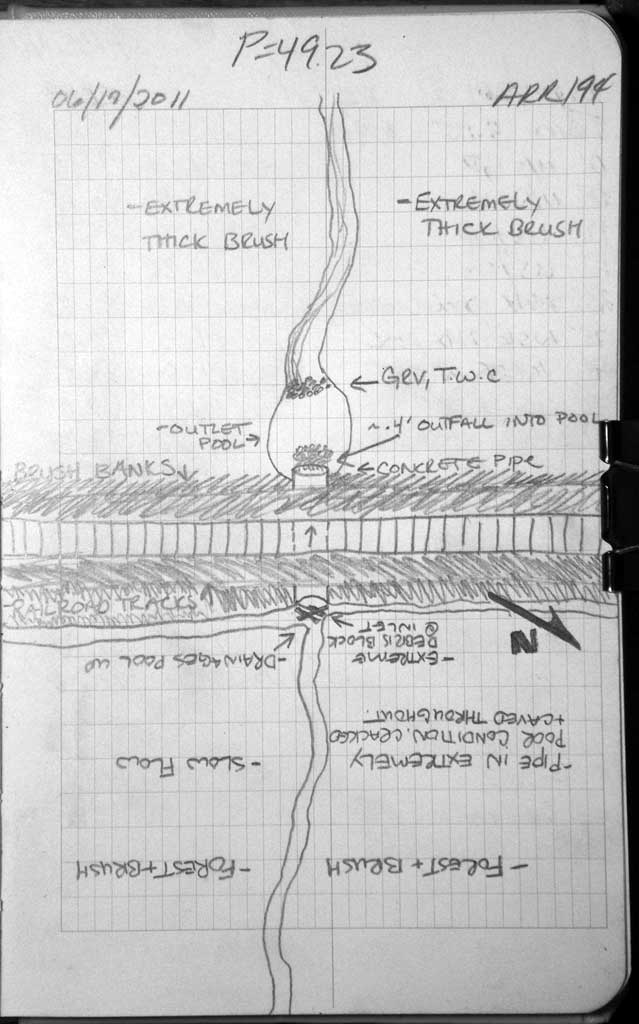 P=49.23
06/19/2011
ARR194
-EXTREMELY
THICK BRUSH
-EXTREMELY
THICK BRUSH
GRV, T.W.C
-OUTLET
POOL
~.4' OUTFALL INTO POOL
CONCRETE PIPE
BRUSH BANKS
-RAILROAD TRACKS
N
-FOREST+BRUSH
-FOREST+BRUSH
-PIPE IN EXTREMELY
POOR CONDITION. CRACKED
+CAVED THROUGHOUT.
-SLOW FLOW
-EXTREME
DEBRIS BLOCK
@ INLET
-DRAINAGES POOL UP